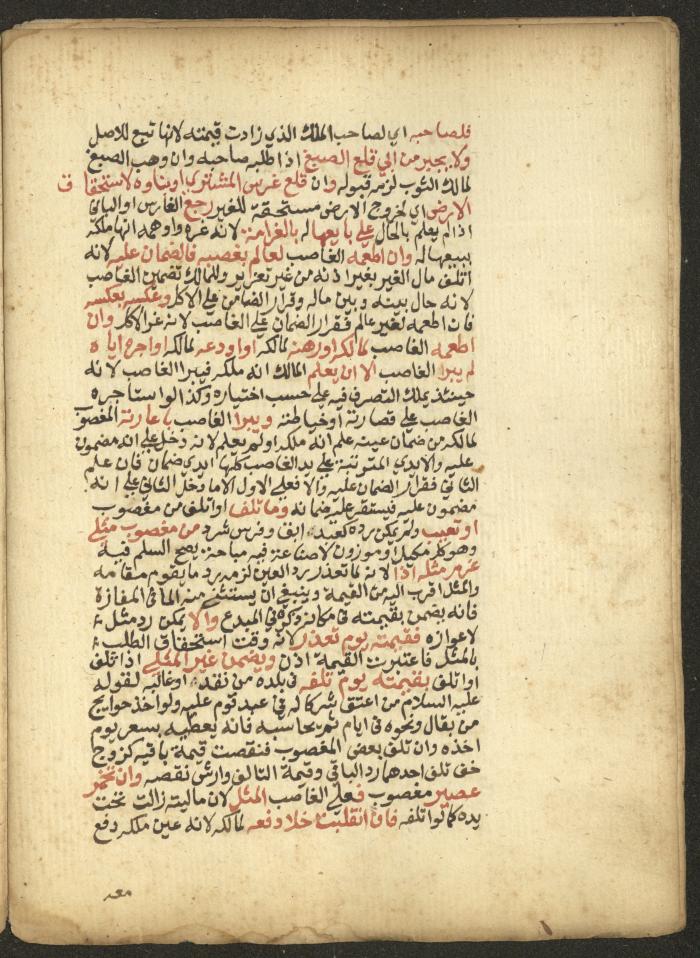 فلصاحبه اي لصاحب الملك الذي زادت قيمته لانها تبع للاصل
ولا يجبر من ابي قلع الصبغ اذا طلبه صاحبه وان وهب الصبغ
لمالك الثوب لزم قبوله وان قلع غرس المشتري او بناوه لاستحقاق
الارض اي لخروج الارض مستحقة للغير رجع الغارس او الباني
اذا لم يعلم بالحال علي بايعها له بالغرامة لانه غره واوهمه انها ملكه
ببيعها له وان اطعمه الغاصب لعالم بغصبه فالضمان عليه لانه
اتلف مال الغير بغير اذنه من غير تغرير وللمالك تضمين الغاصب
لانه حال بينه وبين ماله وقرار الضمان علي الاكل وعكسه بعكسه
فان اطعمه لغير عالم فقرار الضمان علي الغاصب لانه غر الاكل وان
اطعمه الغاصب لمالكه او رهنه لمالكه او اودعه لمالكه او اجره اياه
لم يبرا الغاصب الا ان يعلم المالك انه ملكه فيبرا الغاصب لانه
حينئذ يملك التصرف فيه علي حسب اختياره وكذا لو استاجره
الغاصب علي قصارته او خياطته ويبرا الغاصب باعارته المغصوب
لمالكه من ضمان عينه علم انه ملكه او لم يعلم لانه دخل علي انه مضمون
عليه والايدي المترتبة علي يد الغاصب كلها ايدي ضمان فان علم
الثاني فقرار الضمان عليه والا فعلي الاول الا ما دخل الثاني علي انه
مضمون عليه فيستقر عليه ضمانه وما تلف او اتلف من مغصوب
او تعيب ولم يمكن رده كعبد ابق وفرس شرد من مغصوب مثلي
وهو كل مكيل او موزون لا صناعة فيه مباحة يصح السلم فيه
غرم مثله اذا لانه لما تعذر رد العين لزمه رد ما يقوم مقامه
والمثل اقرب اليه من القيمة وينبغي ان يستثنى منه الما في المفازة
فانه يضمن بقيمته في مكانه ذكره في المبدع والا يمكن رد مثله
لاعوازه فقيمته يوم تعذر لانه وقت استحقاق الطلب
بالمثل فاعتبرت القيمة اذن ويضمن غير المثلي اذا تلف
او اتلف بقيمته يوم تلفه في بلده من نقده او غالبه لقوله
عليه السلام من اعتق شركا له في عبد قوم عليه ولو اخذ حوايج
من بقال ونحوه في ايام ثم يحاسبه فانه يعطيه بسعر يوم
اخذه وان تلف بعض المغصوب فنقصت قيمة باقيه كزوج
خف تلف احدهما رد الباقي وقيمة التالف وارش نقصه وان تخمر
عصير مغصوب فعلي الغاصب المثل لان ماليته زالت تحت
يده كما لو اتلفه فان انقلبت خلا دفعه لمالكه لانه عين ملكه دفع
معه